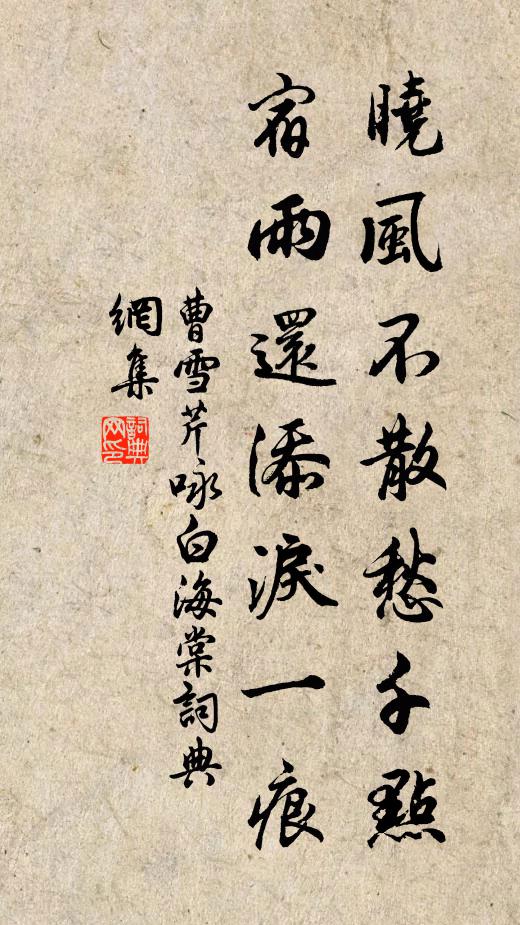 曉風不散愁千點
宿雨還添淚一痕
曹雪芹咏白海棠詞典
網集
詞典
网印